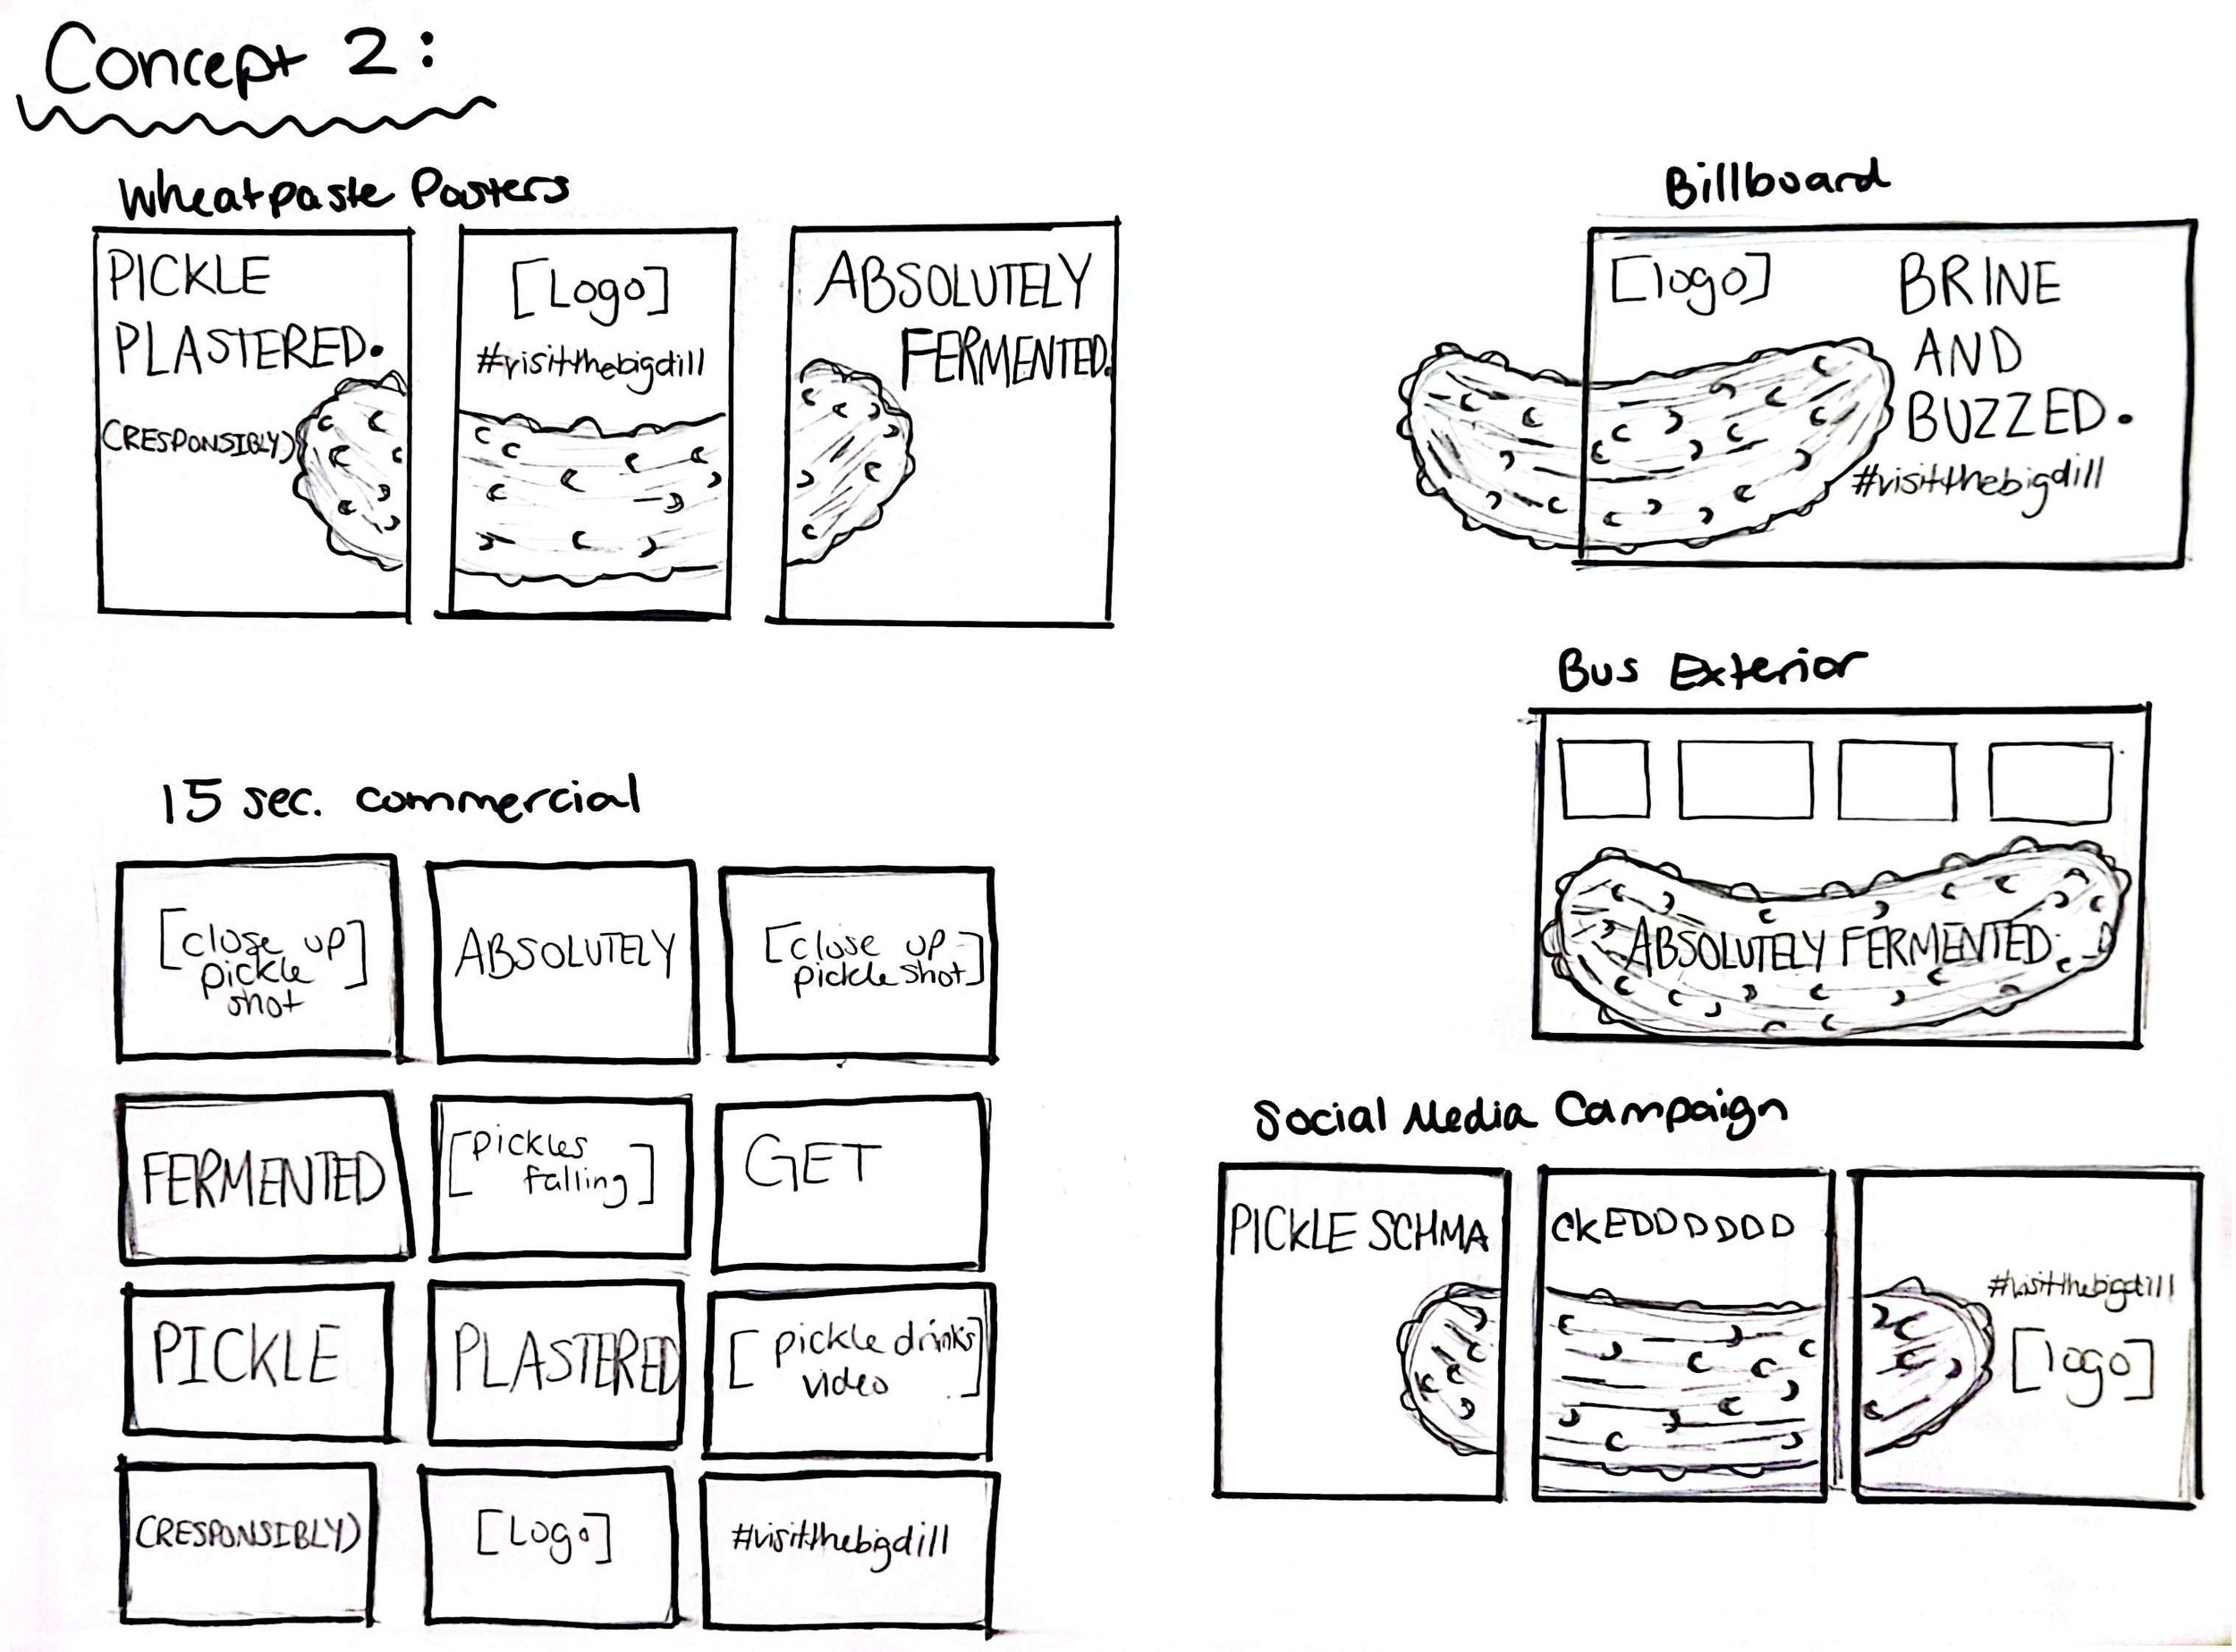 Concept 2:
Wheatpaste Posters
PICKLE
PLASTERED.
(RESPONSIBLY)
[Logo]
#visitthebigdill
ABSOLUTELY
FERMENTED.
Billboard
[logo]
BRINE
AND
BUZZED.
#visitthebigdill
Bus Exterior
ABSOLUTELY FERMENTED.
15 sec. commercial
[close up
pickle
shot]
ABSOLUTELY
[close up
pickle shot]
FERMENTED
[pickles
falling]
GET
PICKLE
PLASTERED
[pickle drinks
video]
(RESPONSIBLY)
[Logo]
#visitthebigdill
Social Media Campaign
PICKLE SCHMA
CKEDDDDDD
#visitthebigdill
[logo]